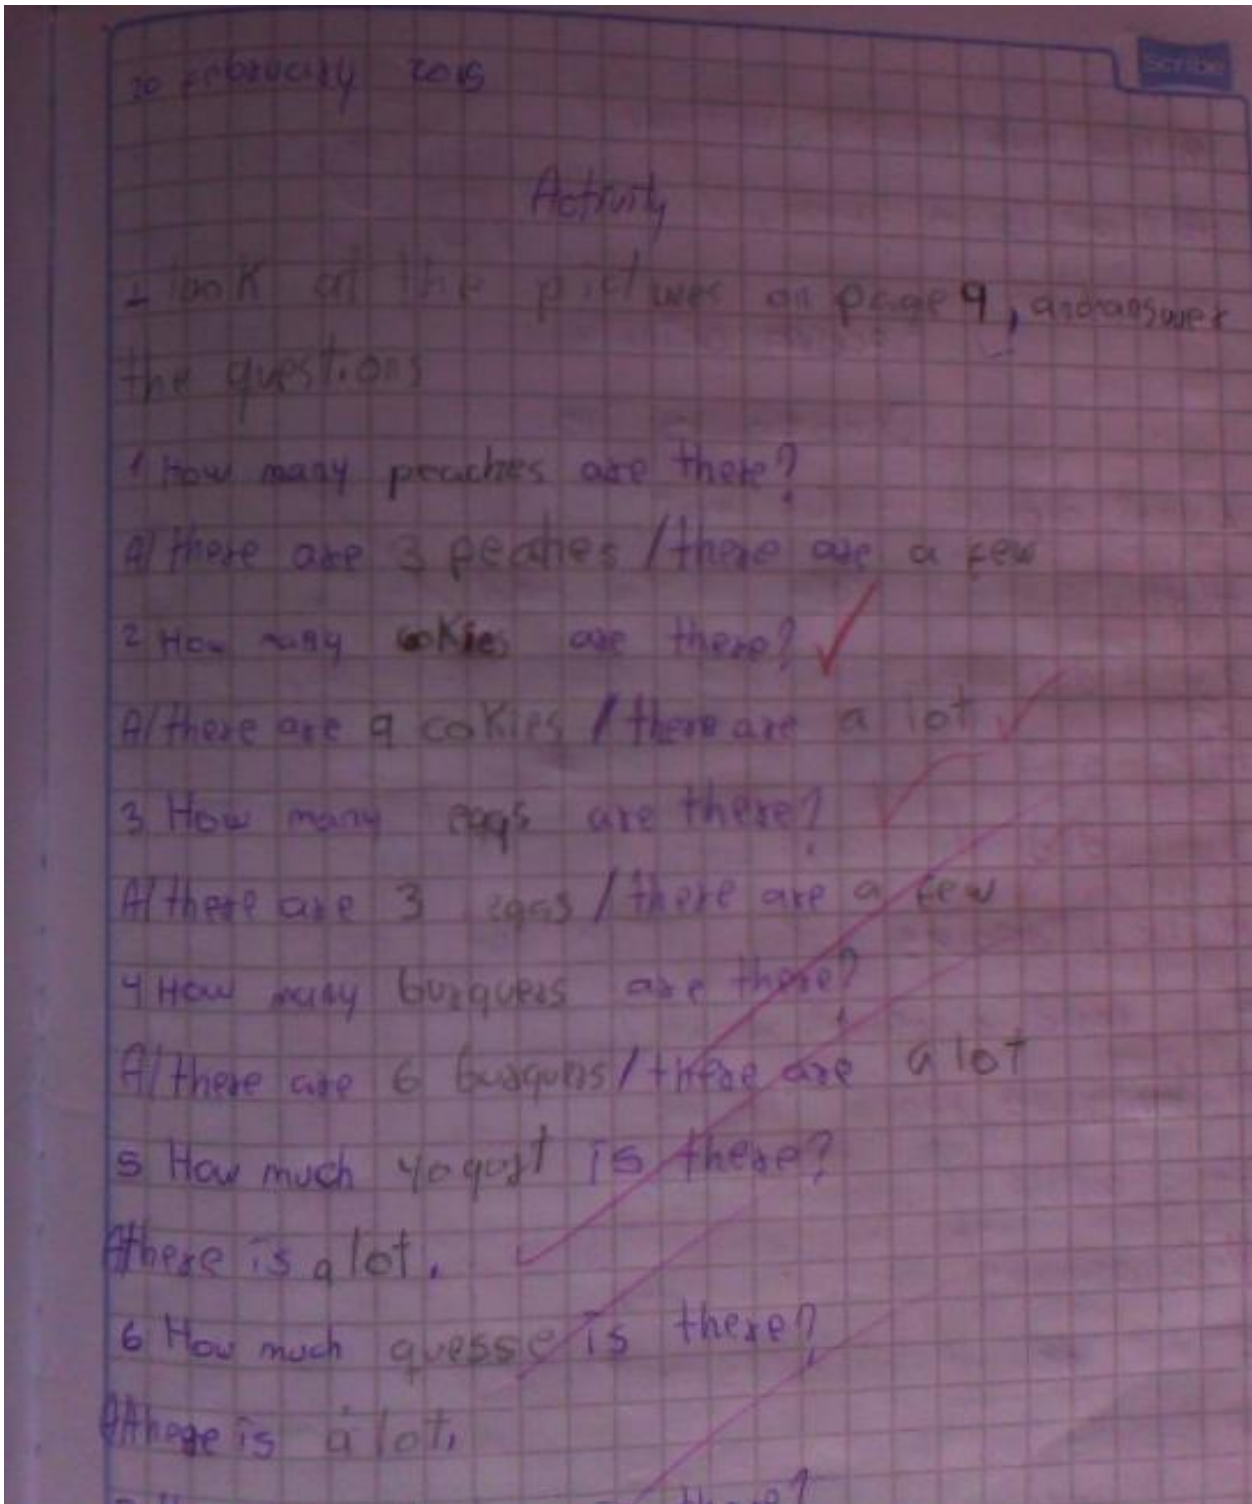 Scribe
20 February 2015
Activity
1 look at the pictures on page 9, and answer
the questions
1 How many peaches are there?
A/ there are 3 peaches / there are a few
2 How many cokies are there?
A/ there are 9 cokies / there are a lot
3 How many eggs are there?
A/ there are 3 eggs / there are a few
4 How many burguers are there?
A/ there are 6 burguers / there are a lot
5 How much yogurt is there?
A there is a lot.
6 How much quesse is there?
A there is a lot.
there?